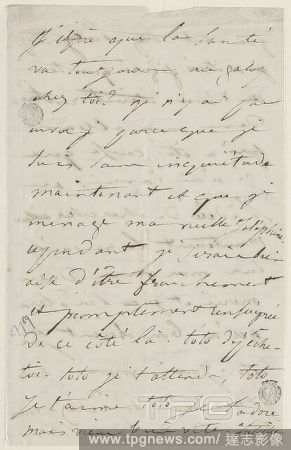 J'espère que la santé
va toujours au galop
chez toi. Je n'y ai pas
envoyé parce que je
suis sans inquiétude
maintenant et que je
ménage ma vieille Stéphanie
cependant je serais bien
aise d'être franchement
et promptement renseignée
de ce côté là. toto dépêche-
toi. toto je t'attends, toto
je t'aime toto je t'adore
mais viens bien vite
TPG
www.tpgnews.com / 達志影像